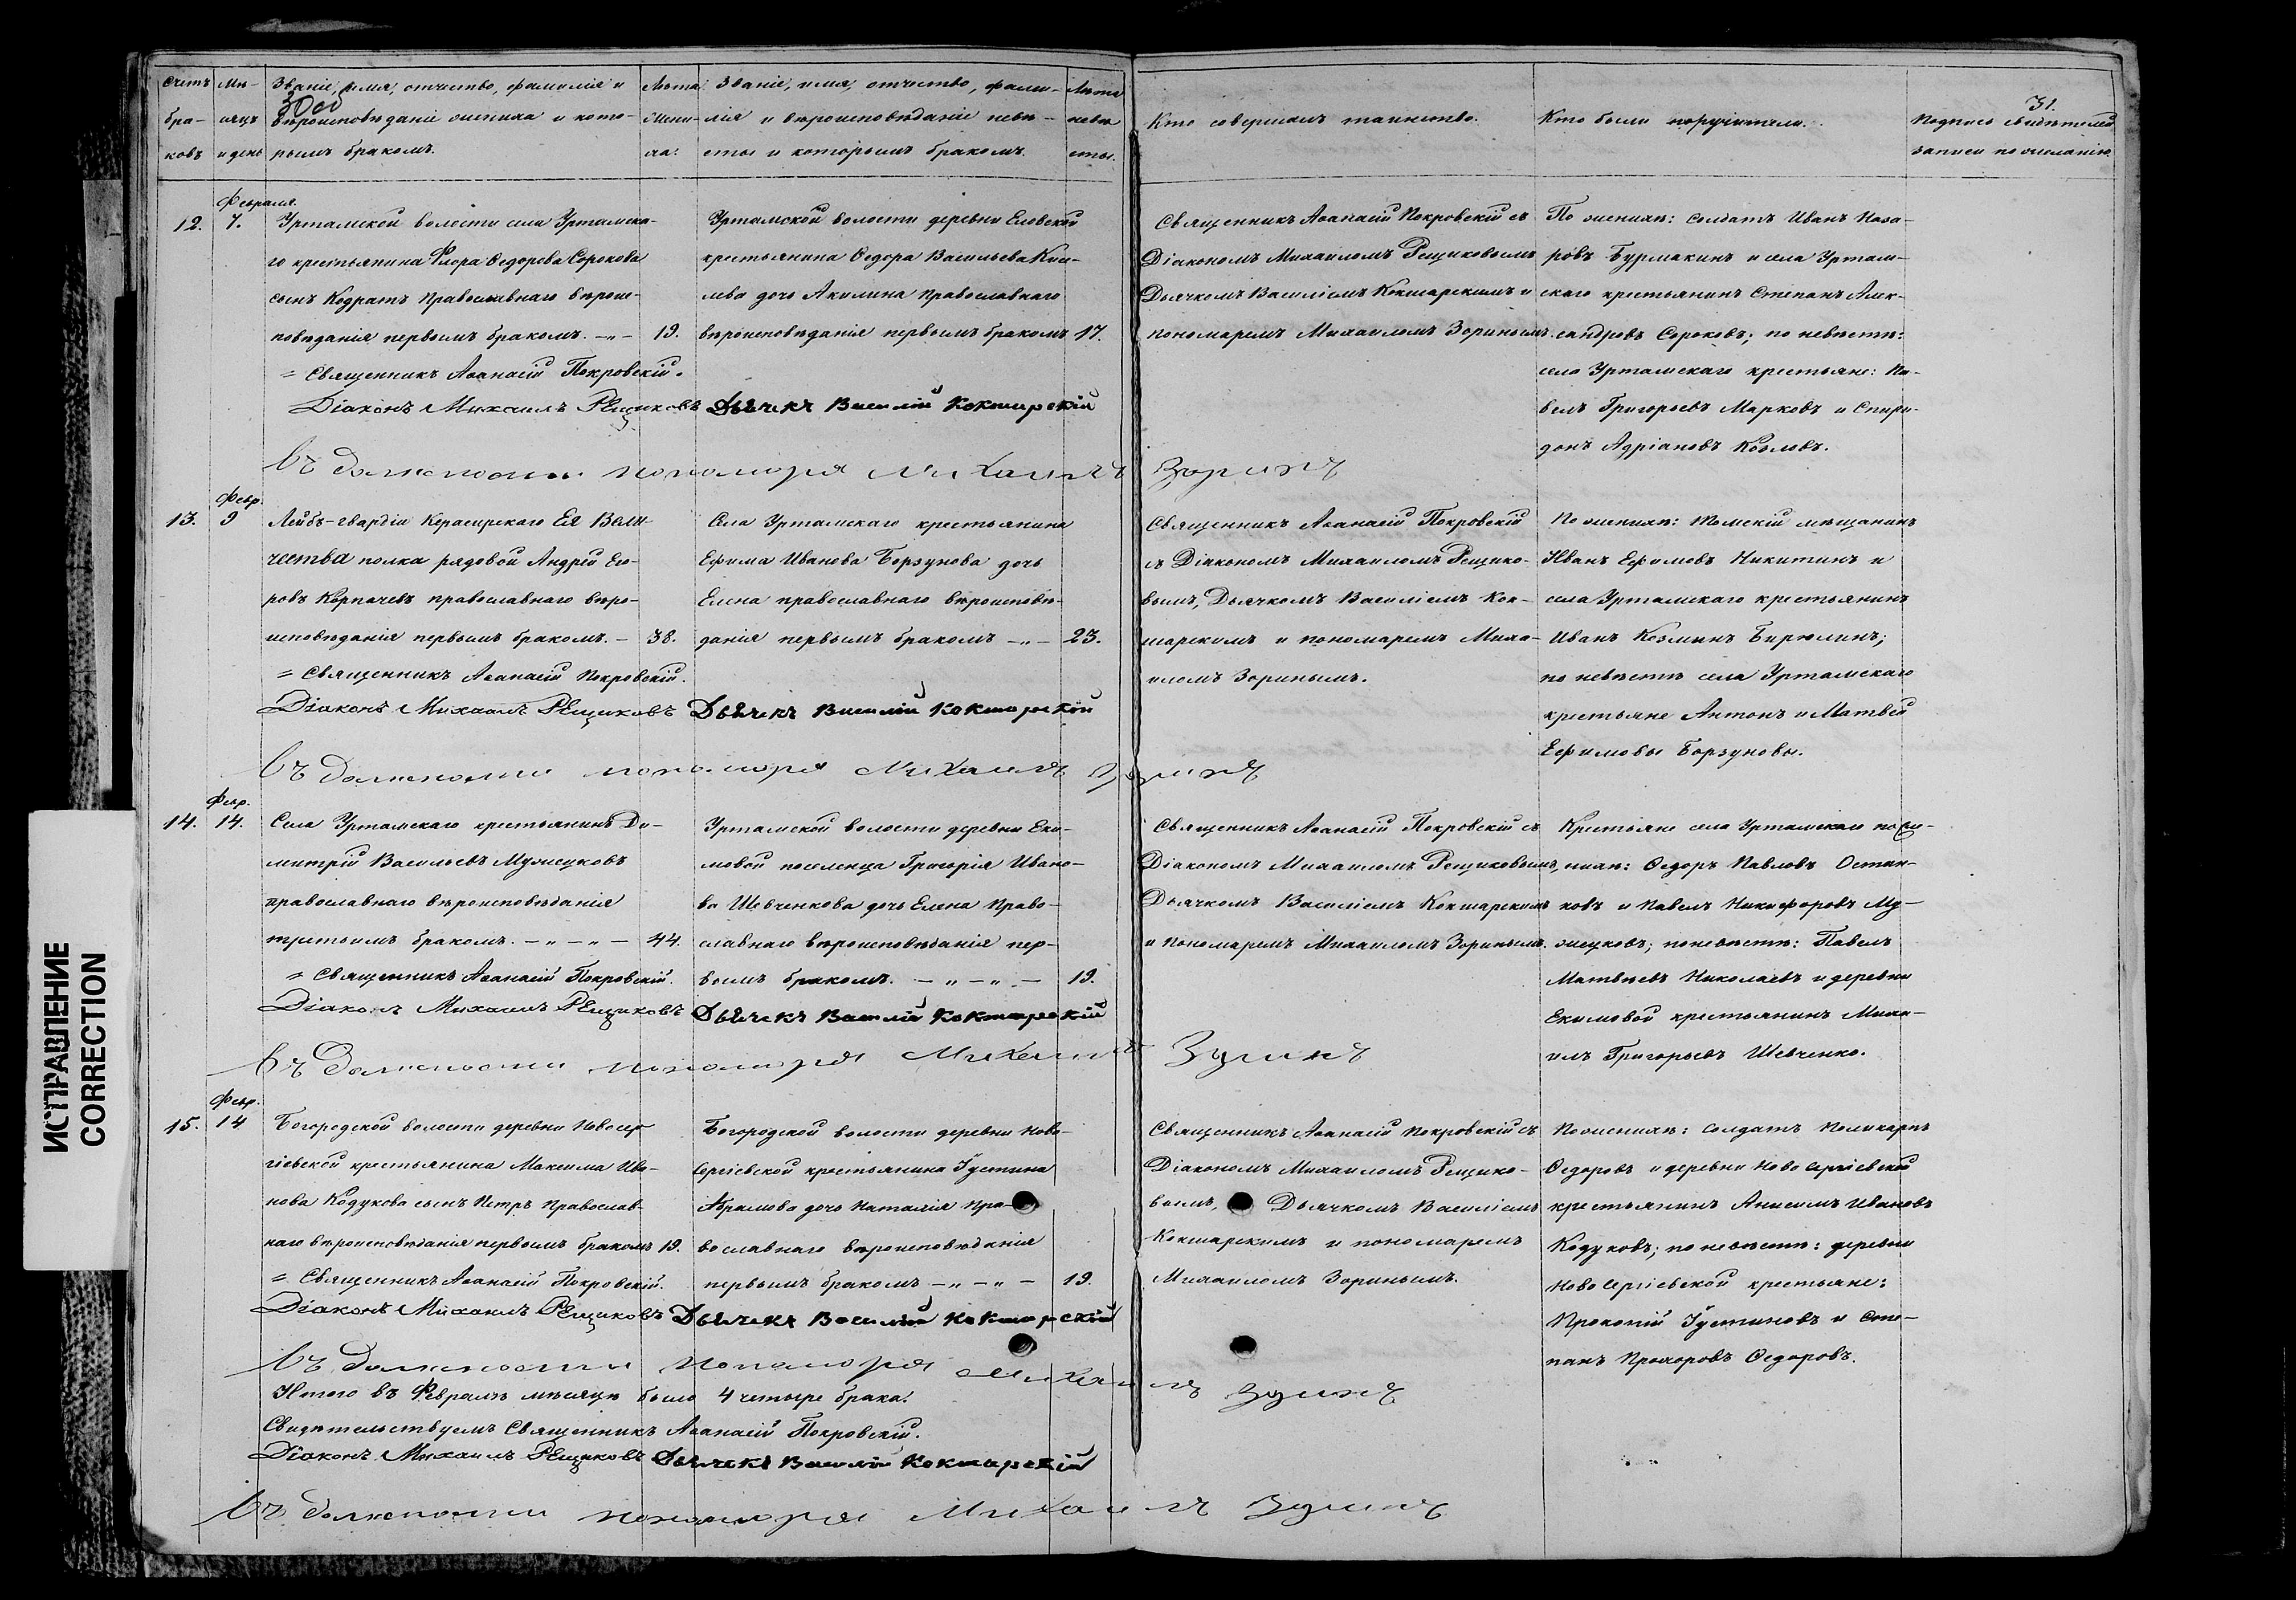 Счетъ
бра-
ковъ
Мѣ-
сяцъ
и день
Званіе, имя, отчество, фамилія и
вѣроисповѣданіе жениха и кото-
рымъ бракомъ.
Лѣта
жени-
ха.
Званіе, имя, отчество, фами-
лія и вѣроисповѣданіе невѣ-
сты и которымъ бракомъ.
Лѣта
невѣ
сты.
Кто совершалъ таинство.
Кто были поручители.
31.
Подпись свидѣтелей
записи по желанію.
12.
Февраля.
7.
Уртамской волости села Уртамска-
го крестьянина Флора Ѳедорова Сорокова
сынъ Кодратъ Православнаго вѣрои-
повѣданія первымъ бракомъ. -„-
19.
= Священникъ Аѳанасій Покровскій.
Діаконъ Михаилъ Рещиковъ
Уртамской волости деревни Еловской
крестьянина Ѳедора Васильева
дочь Акилина православнаго
вѣроисповѣданія первымъ бракомъ
17.
Дьячекъ Василій Кокшарскій
Въ должности пономаря Михаилъ Зоринъ
Священникъ Аѳанасій Покровскій съ
Діакономъ Михаиломъ Рещиковымъ
Дьячкомъ Василіемъ Кокшарскимъ и
пономаремъ Михаиломъ Зоринымъ.
По женихѣ: солдатъ Иванъ Наза-
ровъ Бурмакинъ и села Уртам-
скаго крестьянинъ Степанъ Алек-
сандровъ Сороковъ; по невѣстѣ:
села Уртамскаго крестьяне: Па-
велъ Григорьевъ Марковъ и Спири-
донъ Адріановъ Козловъ.
13.
Февр.
9
Лейбъ-гвардіи Керасирскаго Ея Вели-
чества полка рядовой Андрей Его-
ровъ Корпачевъ православнаго вѣро-
исповѣданія первымъ бракомъ. -
38.
= Священникъ Аѳанасій Покровскій.
Діаконъ Михаилъ Рещиковъ
Села Уртамскаго крестьянина
Ефима Иванова Борзунова дочь
Елена православнаго вѣроисповѣ-
данія первымъ бракомъ -„-
23.
Дьячекъ Василій Кокшарскій
Въ должности пономаря Михаилъ Зоринъ
Священникъ Аѳанасій Покровскій
съ Діакономъ Михаиломъ Рещико-
вымъ, Дьячкомъ Василіемъ Кок-
шарскимъ и пономаремъ Миха-
иломъ Зоринымъ.
По женихѣ: Томскій мѣщанинъ
Иванъ Ефимовъ Никитинъ и
села Уртамскаго крестьянинъ
Иванъ Козминъ Бирюлинъ;
по невѣстѣ села Уртамскаго
крестьяне Антонъ и Матвей
Ефимовы Борзуновы.
14.
Февр.
14.
Села Уртамскаго крестьянинъ Ди-
митрій Васильевъ Мужецковъ
православнаго вѣроисповѣданія
третьимъ бракомъ. -„-„-
44.
= Священникъ Аѳанасій Покровскій.
Діаконъ Михаилъ Рещиковъ
Уртамской волости деревни Еки-
мовой поселенца Григорія Ивано-
ва Шевченкова дочь Елена Право-
славнаго вѣроисповѣданія пер-
вымъ бракомъ. -„-„-
19.
Дьячекъ Василій Кокшарскій
Въ должности пономаря Михаилъ Зоринъ
Священникъ Аѳанасій Покровскій съ
Діакономъ Михаиломъ Рещиковымъ,
Дьячкомъ Василіемъ Кокшарскимъ
и Пономаремъ Михаиломъ Зоринымъ.
Крестьяне села Уртамскаго по же-
нихѣ: Ѳедоръ Павловъ Остан-
ковъ и Павелъ Никифоровъ Му-
жецковъ; по невѣстѣ: Павелъ
Матвѣевъ Николаевъ и деревни
Екимовой крестьянинъ Миха-
илъ Григорьевъ Шевченко.
15.
Февр.
14
Богородской волости деревни Новосер
гіевской крестьянина Максима Ива-
нова Кодукова сынъ Петръ Православ-
наго вѣроисповѣданія первымъ бракомъ
19.
= Священникъ Аѳанасій Покровскій.
Діаконъ Михаилъ Рещиковъ
Богородской волости деревни Ново-
сергіевской крестьянина Густина
Абрамова дочь Наталія Пра-
вославнаго вѣроисповѣданія
первымъ бракомъ -„-„-
19.
Дьячекъ Василій Кокшарскій
Въ должности пономаря Михаилъ Зоринъ
Священникъ Аѳанасій Покровскій съ
Діакономъ Михаиломъ Рещико-
вымъ, Дьячкомъ Василіемъ
Кокшарскимъ и пономаремъ
Михаиломъ Зоринымъ.
По женихѣ: солдатъ Поликарпъ
Ѳедоровъ и деревни Новосергіевской
крестьянинъ Анисимъ Ивановъ
Кодуковъ; по невѣстѣ: деревни
Новосергіевской крестьяне:
Прокопій Густиновъ и Сте-
панъ Прохоровъ Ѳедоровъ.
Итого въ Февралѣ мѣсяцѣ было 4 четыре брака.
Свидѣтельствуемъ Священникъ Аѳанасій Покровскій.
Діаконъ Михаилъ Рещиковъ Дьячекъ Василій Кокшарскій
Въ должности пономаря Михаилъ Зоринъ
ИСПРАВЛЕНИЕ
CORRECTION